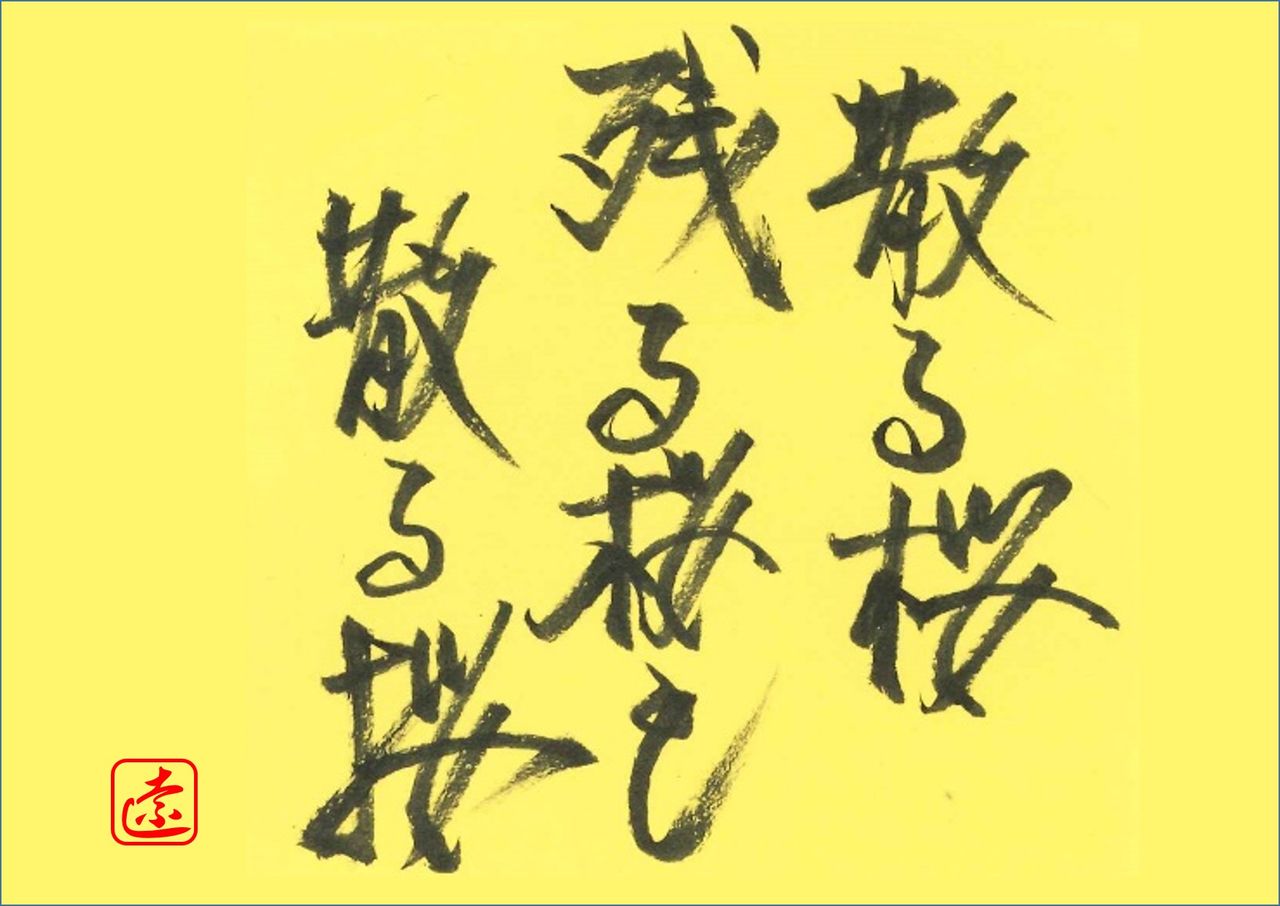 散る桜
残る桜も
散る桜